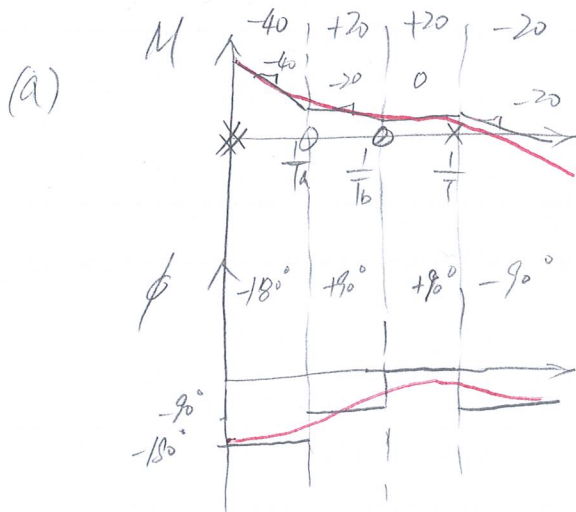 -40 +20 +20 -20
M
-40 -20 0 -20
(a)
1/Ta 1/Tb 1/T
ϕ -180° +90° +90° -90°
-90°
-180°